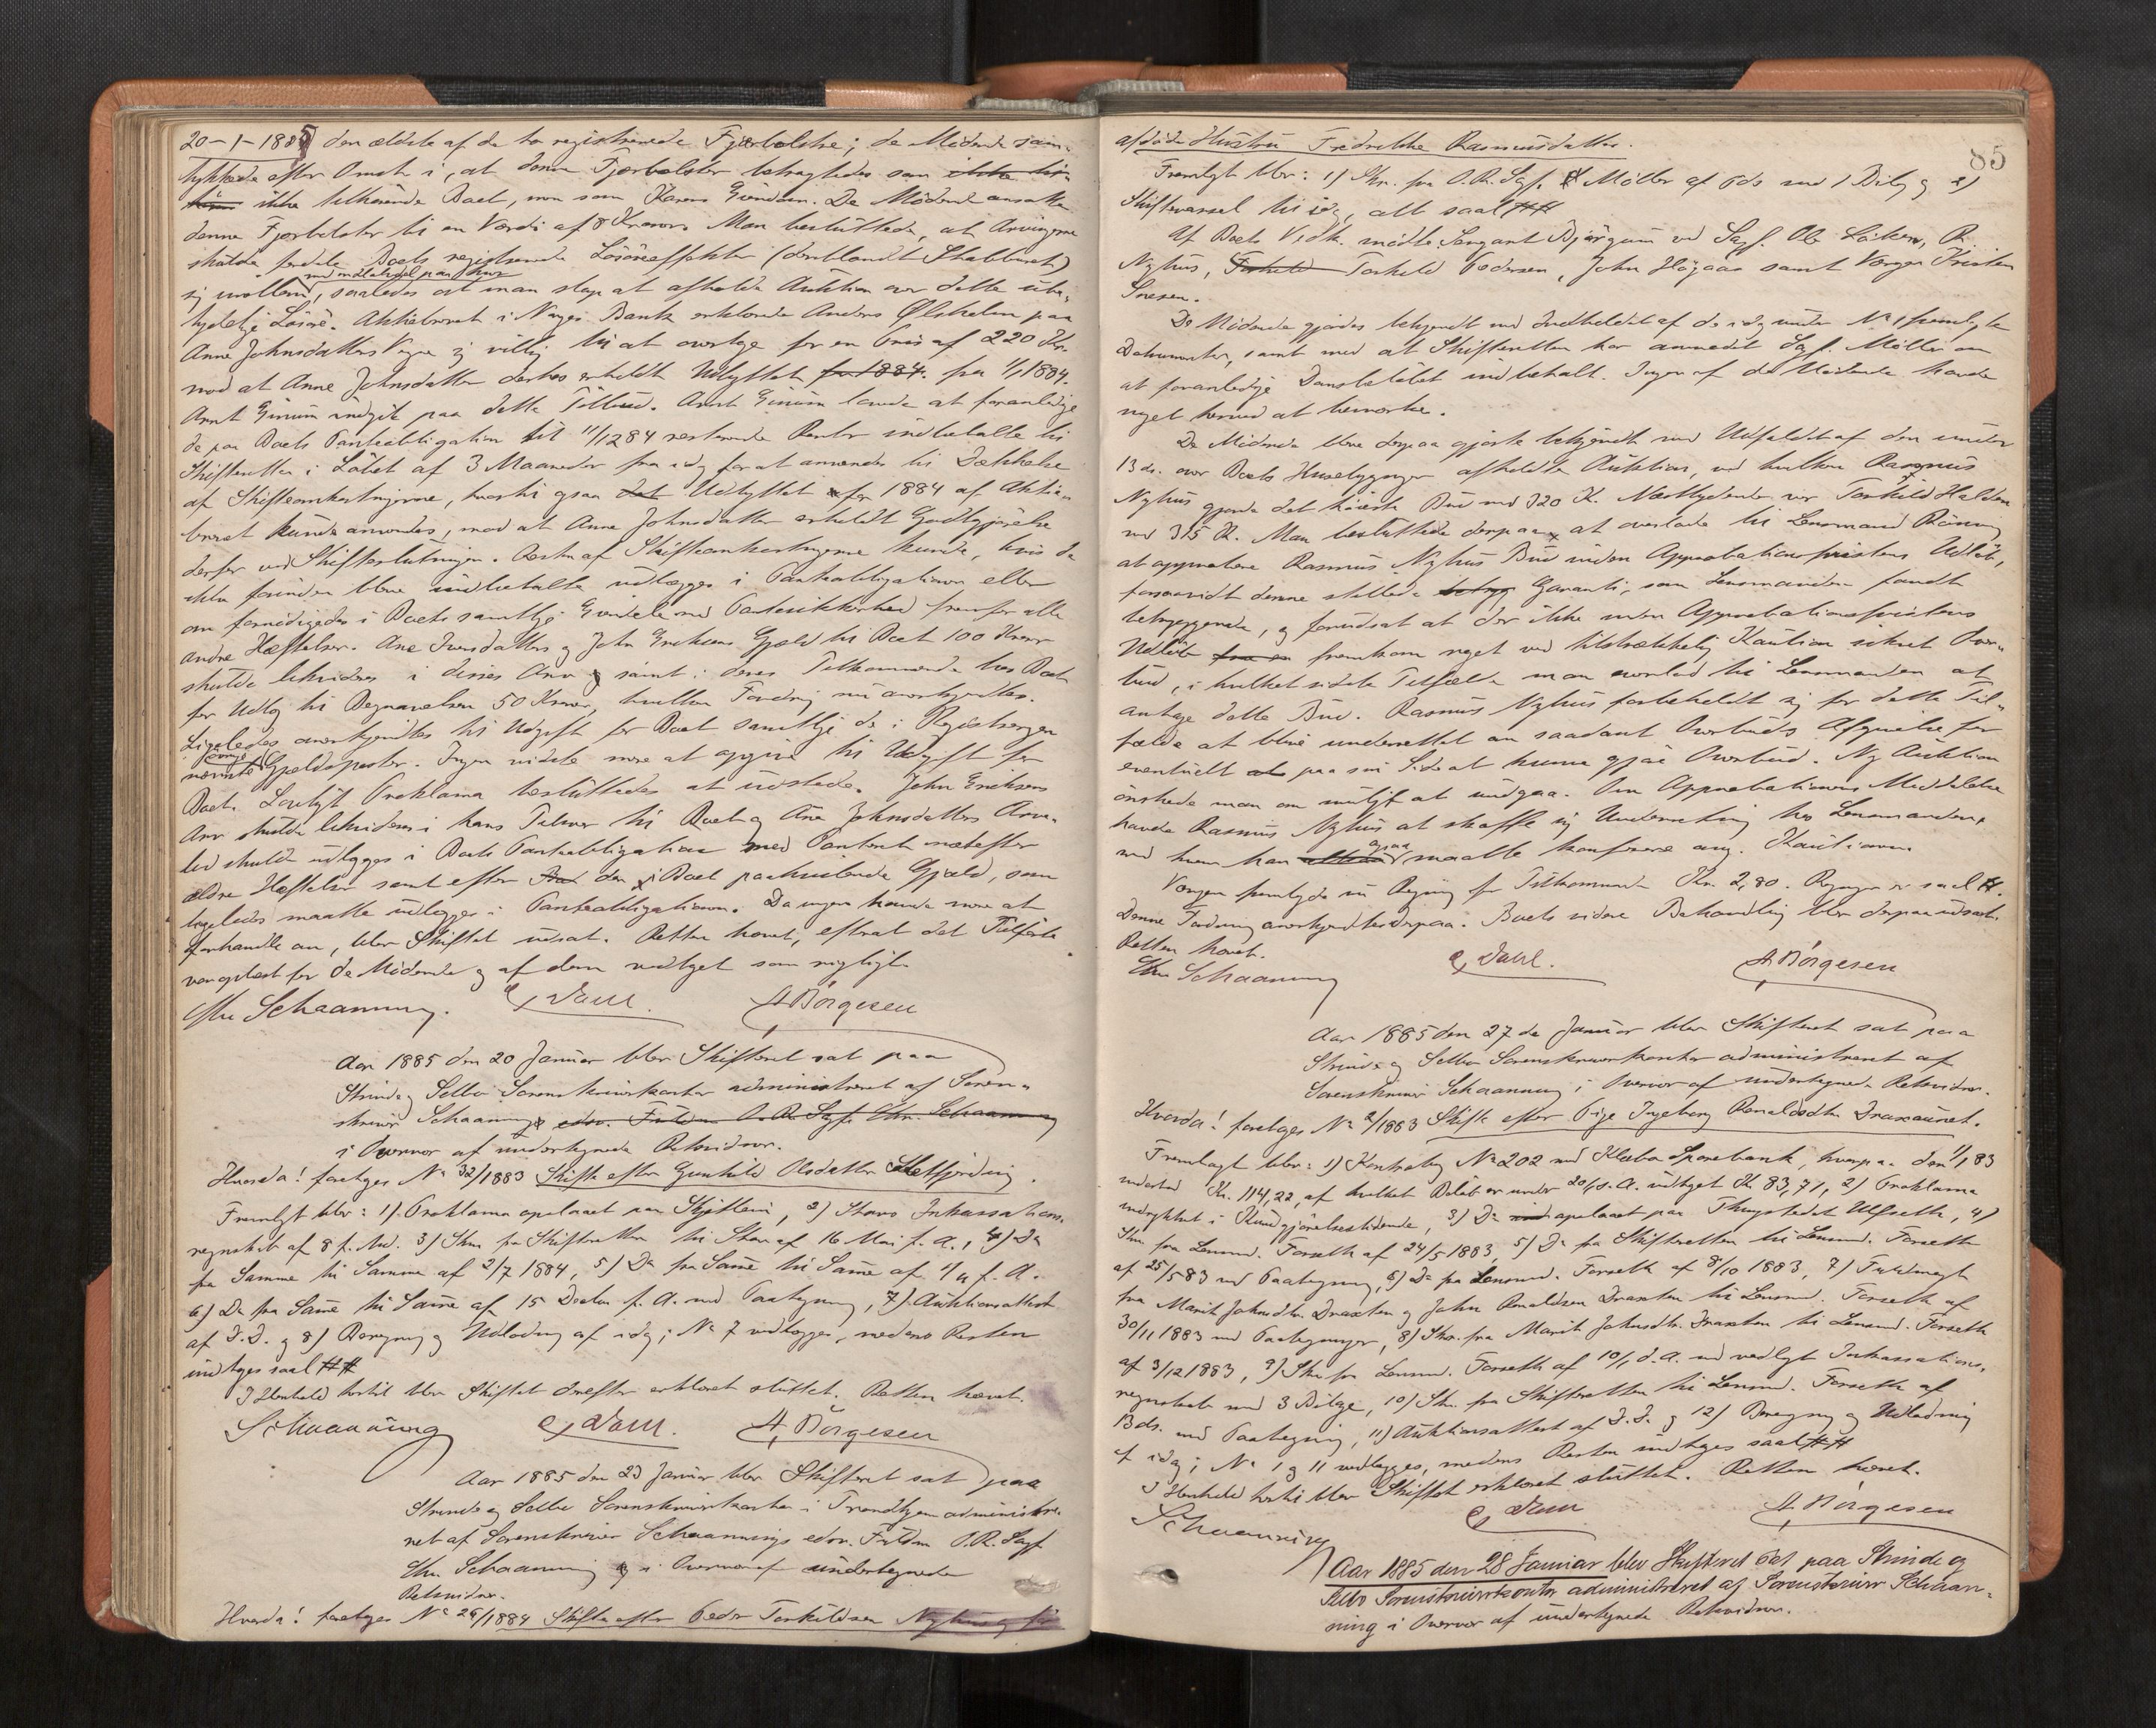 20-1-1885 den ældste af de to registrerede Fjærbolstre; de Mödende sam-
tykkede efter Omst. i, at denne Fjærbolster betragtedes som
ikke tilhørende Boet, men som Karens Eiendom. De Mödende ansatte
denne Fjærbolster til en Værdi af 8 Kroner. Man besluttede, at Arvingerne
skulde fordele Boets registrerede Lösöreeffekter (deriblandt Stabburet)
sig imellem, saaledes at man slap at afholde Auktion over dette ube-
tydelige Lösöre. Aktiebrevet i Norges Bank erklærede Anders Ölstholm paa
Anne Johnsdatters Vegne sig villig til at overtage for en Pris af 220 Kr.
mod at Anne Johnsdatter derhos erholdt Udbyttet for 1884. fra 1/1 1884.
Arnt Grinum indgik paa dette Tilbud. Arnt Grinum lovede at foranledige
de paa Boets Panteobligation til 11/12 84 resterende Renter indbetalte til
Skifteretten i Löbet af 3 Maaneder fra idag for at anvendes til Dækkelse
af Skifteomkostningerne, hvortil ogsaa det Udbyttet for 1884 af Aktie-
brevet kunde anvendes, mod at Anne Johnsdatter erholdt Godtgjörelse
derfor ved Skifteslutningen. Resten af Skifteomkostningerne kunde, hvis de
ikke forinden bleve indbetalte udlægges i Panteobligationen eller
om fornödiges i Boets samtlige Eiendele med Pantesikkerhed fremfor alle
andre Hæftelser. Ane Iversdatters og John Eriksens Gjæld til Boet 100 Kroner
skulde likvideres i disses Arv samt i deres Tilkommende hos Boet
for Udlæg til Begravelsen 50 Kroner, hvilken Fordring nu anerkjendtes.
Ligeledes anerkjendtes til Udgift for Boet samtlige de i Registreringen
nævnte övrige Gjældsposter. Ingen vidste mere at opgive til Udgift for
Boet. Lovligt Proklama besluttedes at udstede. John Eriksens
Arv skulde likvideres i hans Tilsvar til Boet og Ane Johnsdatters Arve-
lod skulde udlægges i Boets Panteobligation med Panteret næstefter
ældre Hæftelser samt efter den i Boet paahvilende Gjæld, som
ligeledes maatte udlægges i Panteobligationen. Da ingen havde mere at
forhandle om, blev Skiftet udsat. Retten hævet, efterat det Tilförte
var oplæst for de Mödende og af dem vedtaget som rigtigt.
Chr Schaanning. E. Dahl. A. Börgesen
Aar 1885 den 20 Januar blev Skifteret sat paa
Strinde og Selbu Sorenskriverkontor administreret af Soren-
skriver Schaanning edsv. Fuldm. O. R. Sagf. Chr. Schaanning
i Overvær af undertegnede Retsvidner.
Hvorda! foretages No 32/1883 Skifte efter Gunhild Olsdatter Sletfjerding.
Fremlagt blev: 1) Proklama oplæst paa Thjotlein, 2) Stavs Inkassations-
regnskab af 8 f. Md. 3) Skr. fra Skifteretten til Stav af 16 Mai f. A., 4) Do
fra Samme til Samme af 2/7 1884, 5) Do fra Same til Same af f. A.
6) Do fra Same til Same af 15 Decbr. f. A. med Paategning, 7) Auktionsattest
af D. D. og 8) Beregning og Udlodning af idag; No 7 vedlægges, medens Resten
indtages saal ##
I Henhold hertil blev Skiftet derefter erklæret sluttet. Retten hævet.
Schaanning E. Dahl. A. Börgesen
Aar 1885 den 23 Januar blev Skifteret sat paa
Strinde og Selbu Sorenskriverkontor i Trondhjem administre-
ret af Sorenskriver Schaannings edsv. Fuldm. O. R. Sagf
Chr. Schaanning i Overvær af undertegnede
Retsvidner.
Hvorda! foretages No 26/1884 Skifte efter Peder Torkildsen Nyhus og för
85
afdöde Hustru Fredrikke Rasmusdatter.
Fremlagt blev: 1) Skr. fra O. R. Sagf. Möller af 6ds med 1 Bilag og 2)
Skiftevarsel til idag, alt saal ##
Af Boets Vedk. mödte Sergant Bjørgum ved Sagf. Ole Löcken, R.
Nyhus, Torkild Pedersen, John Högaas samt Værgen Kristen
Snesen.
De Mödende gjordes bekjendt med Indholdet af de idag under No 1 fremlagte
Dokumenter, samt med at Skifteretten har anmodet Sagf. Möller om
at foranledige Danskelöbet indbetalt. Ingen af de Mödende havde
noget herved at bemærke.
De Mödende bleve derpaa gjorte bekjendt med Udfaldet af den under
13 ds. over Boets Husebygninger afholdte Auktion, ved hvilken Rasmus
Nyhus gjorde det höieste Bud med 320 K. Næstbydende var Torkild Halden
med 315 K. Man besluttede derpaa at overlade til Lensmand Röning
at approbere Rasmus Nyhus Bud inden Approbationsfristens Udlöb,
forsaavidt denne stillede Garanti, som Lensmanden fandt
betryggende, og forudsat at der ikke inden Approbationsfristens
Udlöb fremkom noget ved tilstrækkelig Kaution sikret Over-
bud, i hvilket sidste Tilfælde man overlod til Lensmanden at
antage dette Bud. Rasmus Nyhus forbeholdt sig for dette Til-
fælde at blive underrettet om saadant Overbuds Afgivelse for
eventuelt paa sin Side at kunne gjöre Overbud. Ny Auktion
önskede man om muligt at undgaa. Om Approbationens Meddelelse
havde Rasmus Nyhus at skaffe sig Underretning hos Lensmanden,
med hvem han ogsaa maatte konferere ang. Kautionen.
Værgen fremlagde nu Regning for Tilkommende Kr. 2,80. Regningen er saal #.
Denne Fordring anerkjendtes derpaa. Boets videre Behandling blev derpaa udsat.
Retten hævet.
Chr Schaanning E. Dahl. A. Börgesen
Aar 1885 den 27de Januar blev Skifteret sat paa
Strinde og Selbu Sorenskriverkontor administreret af
Sorenskriver Schaanning i Overvær af undertegnede Retsvidner.
Hvorda! foretages No 2/1883 Skifte efter Pige Ingeborg Ronaldsdtr. Draxaunet.
Fremlagt blev: 1) Kontrabog No 202 med Klæbu Sparebank, hvorpaa den 1/1 83
indestod Kr. 114,22, af hvilket Belöb er under 20/1 d. A. udtaget Kr 83,71, 2) Proklama
indrykket i Kundgjörelsestidende, 3) Do oplæst paa Thingstedet Ulfseth, 4)
Skr. fra Lensmd. Forseth af 24/5 1883, 5) Do fra Skifteretten til Lensmd. Forseth
af 25/5 83 med Paategning, 6) Do fra Lensmd. Forseth af 8/10 1883, 7) Fuldmagt
fra Marit Johnsdtr. Draxten og John Ronaldsen Draxten til Lensmd. Forseth af
30/11 1883 med Paategninger, 8) Skr. fra Marit Johnsdtr. Draxten til Lensmd. Forseth
af 3/12 1883, 9) Skr. fra Lensmd. Forseth af 10/1 d. A. med vedlagt Inkassations-
regnskab med 3 Bilage, 10) Skr. fra Skifteretten til Lensmd. Forseth af
13 ds. med Paategning, 11) Auktionsattest af D. D. og 12) Beregning og Udlodning
af idag; No 1 og 11 vedlægges, medens Resten indtages saal ##
I Henhold hertil blev Skiftet erklæret sluttet. Retten hævet.
Schaanning E. Dahl A. Börgesen
Aar 1885 den 28 Januar blev Skifteret sat paa Strinde og
Selbo Sorenskriverkontor administreret af Sorenskriver Schaan-
ning i Overvær af undertegnede Retsvidner.